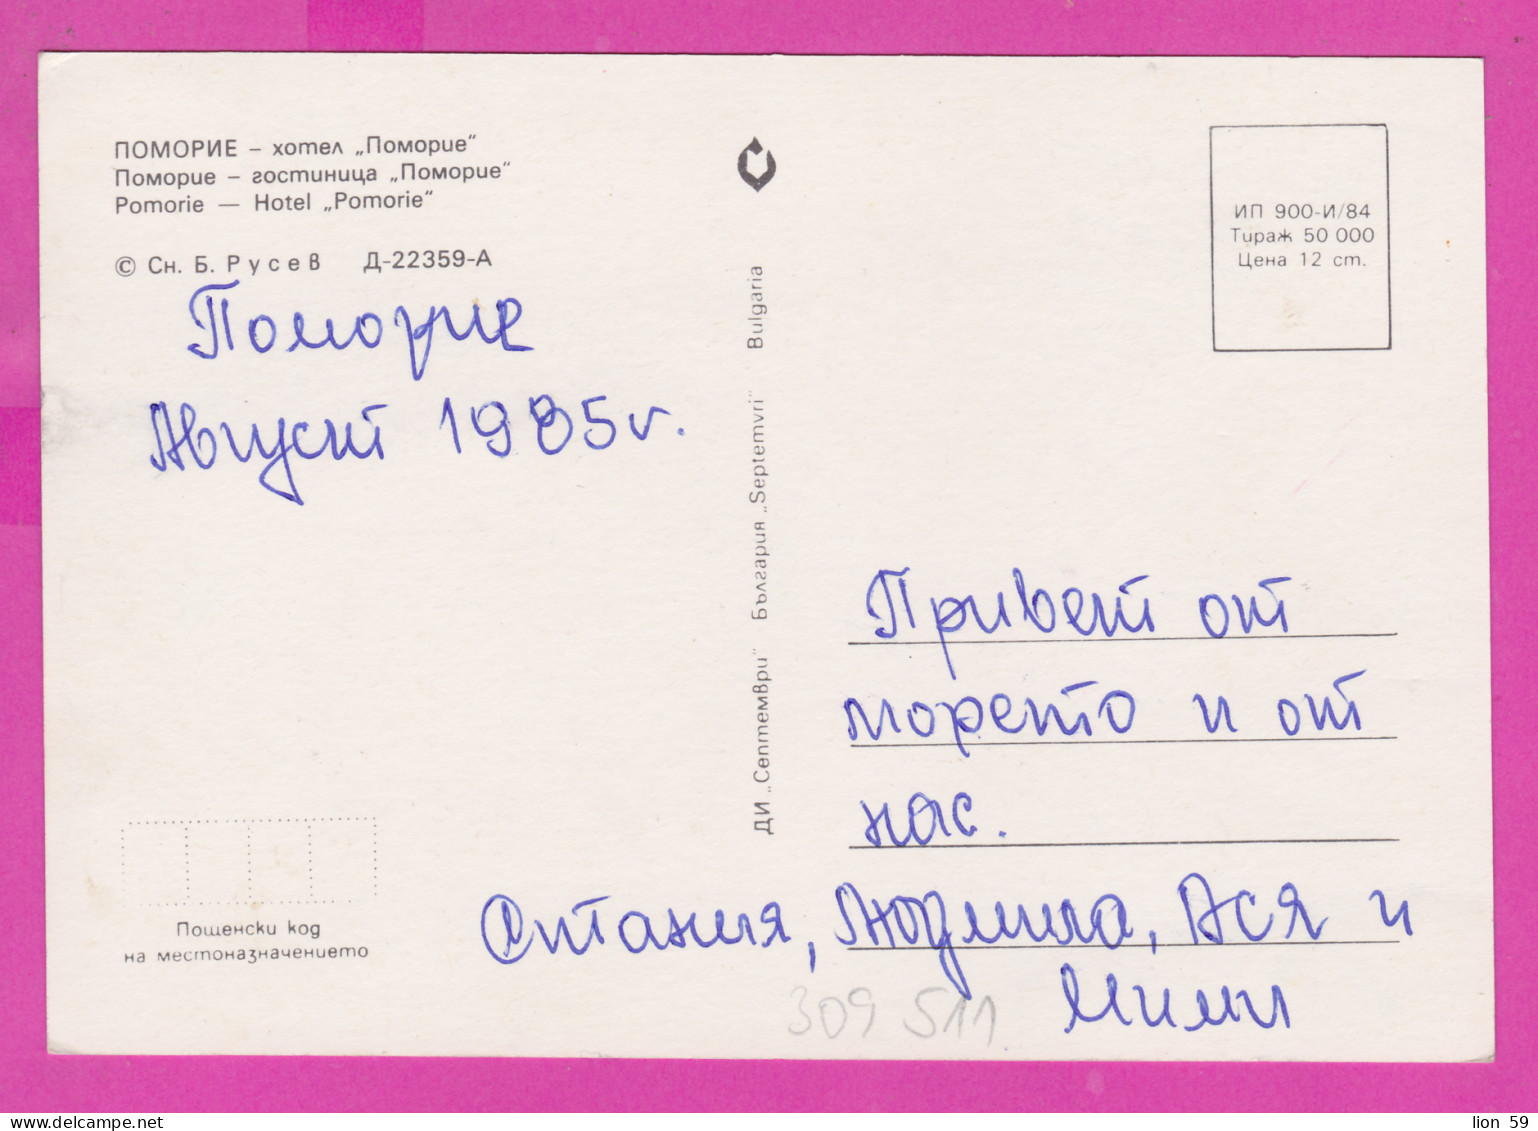 ПОМОРИЕ – хотел „Поморие“
Поморие – гостиница „Поморие“
Pomorie — Hotel „Pomorie“
© Сн. Б. Русев Д-22359-А
Поморие
Август 1985 г.
ИП 900-И/84
Тираж 50 000
Цена 12 ст.
ДИ „Септември“ България „Septemvri“ Bulgaria
Привет от
морето и от
нас.
Людмила, Ася и
Мими
309 511
Пощенски код
на местоназначението
www.delcampe.net
lion 59